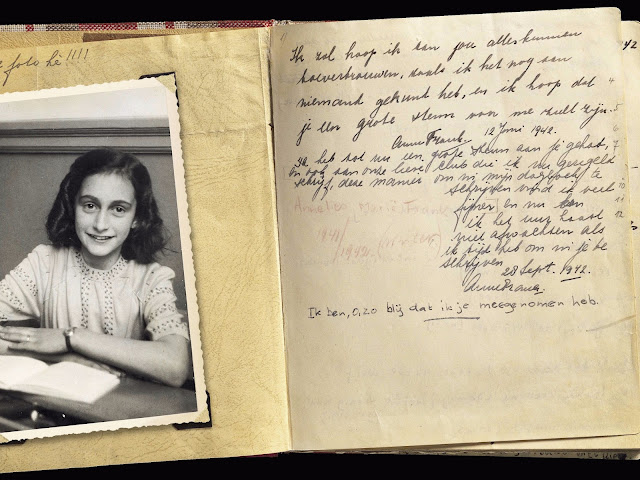 foto hè!!!!
Ik zal hoop ik aan jou alles kunnen
toevertrouwen, zoals ik het nog aan
niemand gekunt heb, en ik hoop dat
je een grote steun voor me zult zijn.
Anne Frank. 12 Juni 1942.
Ik heb tot nu een grote steun aan je gehad,
en ook aan onze lieve club die ik nu geregeld
schrijf, deze manier om in mijn dagboek te
schrijven vind ik veel
fijner en nu kan
ik het uur haast
niet afwachten als
ik tijd heb om in je te
schrijven.
28 Sept. 1942.
Anne Frank.
Ik ben, o, zo blij dat ik je meegenomen heb.
42
4
5
6
7
10
11
12
1942